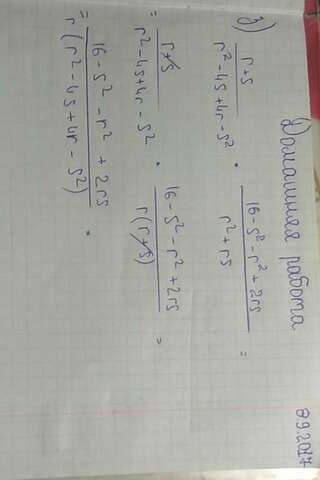 Домашняя работа
3) r+s / r² - 4s + 4r - s² · 16 - s² - r² + 2rs / r² + rs =
= r+s / r² - 4s + 4r - s² · 16 - s² - r² + 2rs / r(r+s) =
= 16 - s² - r² + 2rs / r(r² - 4s + 4r - s²) .